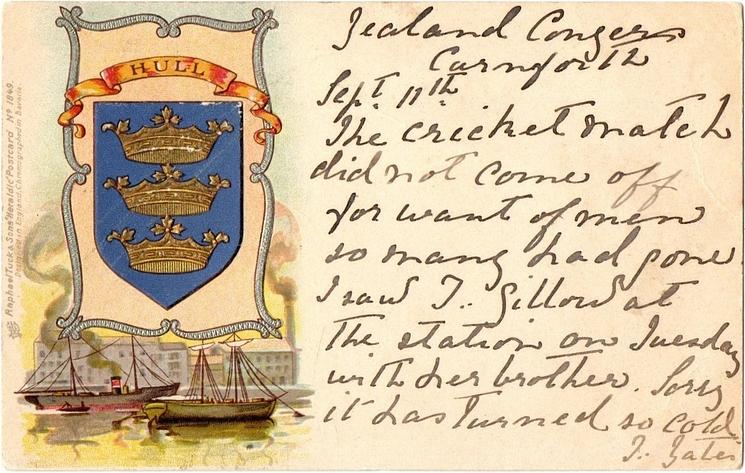 HULL
Raphael Tuck & Sons "Heraldic" Postcard Nº 1849.
Designed in England, Chromographed in Bavaria.
Yealand Conyers
Carnforth
Sept. 11th
The cricket match
did not come off
for want of men
so many had gone
I saw T. Gillow at
the station on Tuesday
with her brother. Sorry
it has turned so cold.
T. Yates